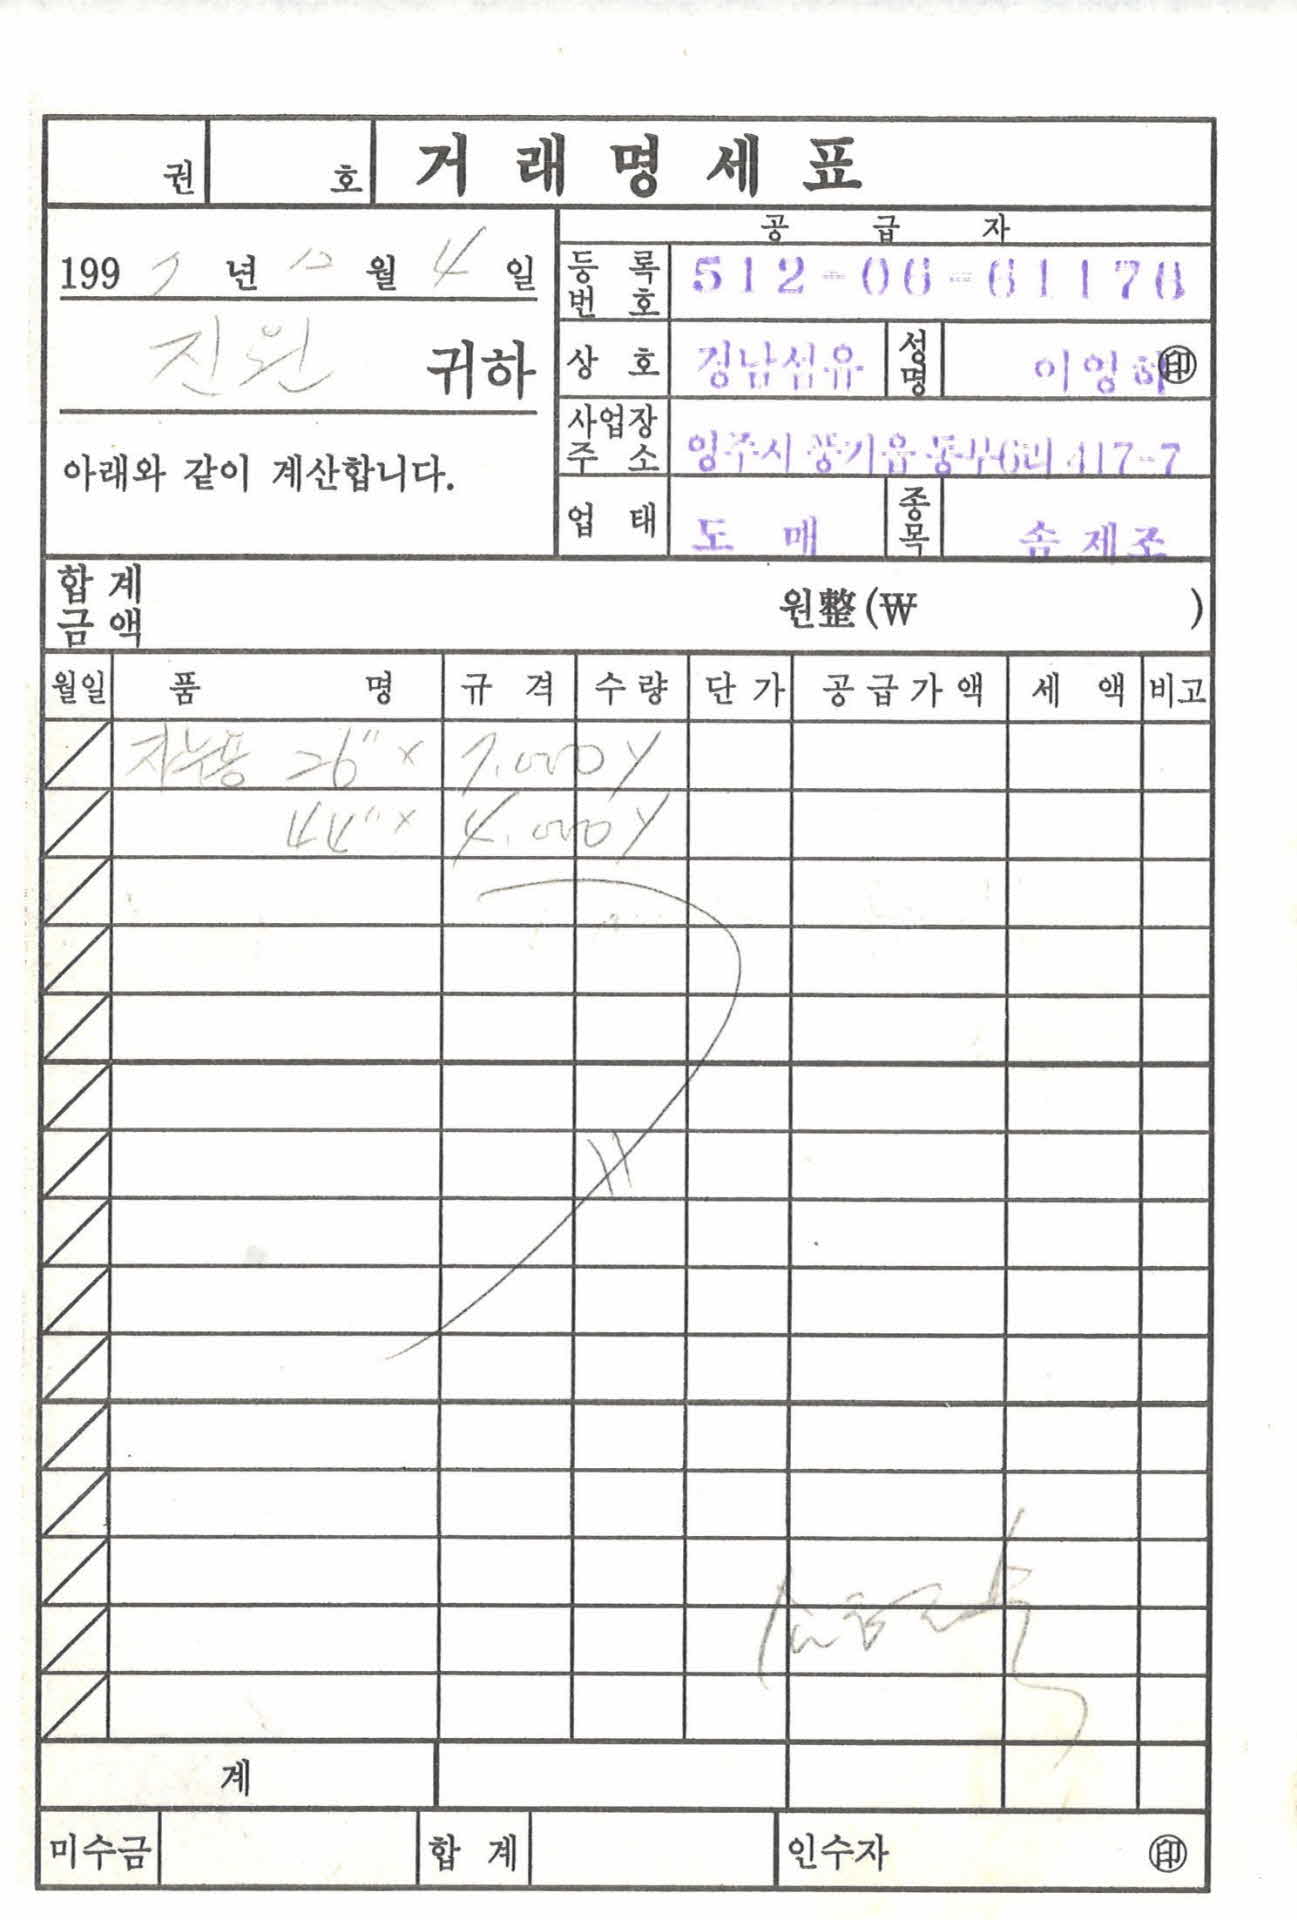 권 호 거래명세표
공급자
1997년 12월 4일
등록번호 512-06-61176
진원 귀하
상호 경남섬유 성명 이영하 ㊞
사업장주소 영주시 풍기읍 동부6리 417-7
아래와 같이 계산합니다.
업태 도매 종목 솜제조
합계금액 원整(₩ )
월일 품명 규격 수량 단가 공급가액 세액 비고
26" × 7.000y
44" × 4.000y
계
미수금 합계 인수자 ㊞